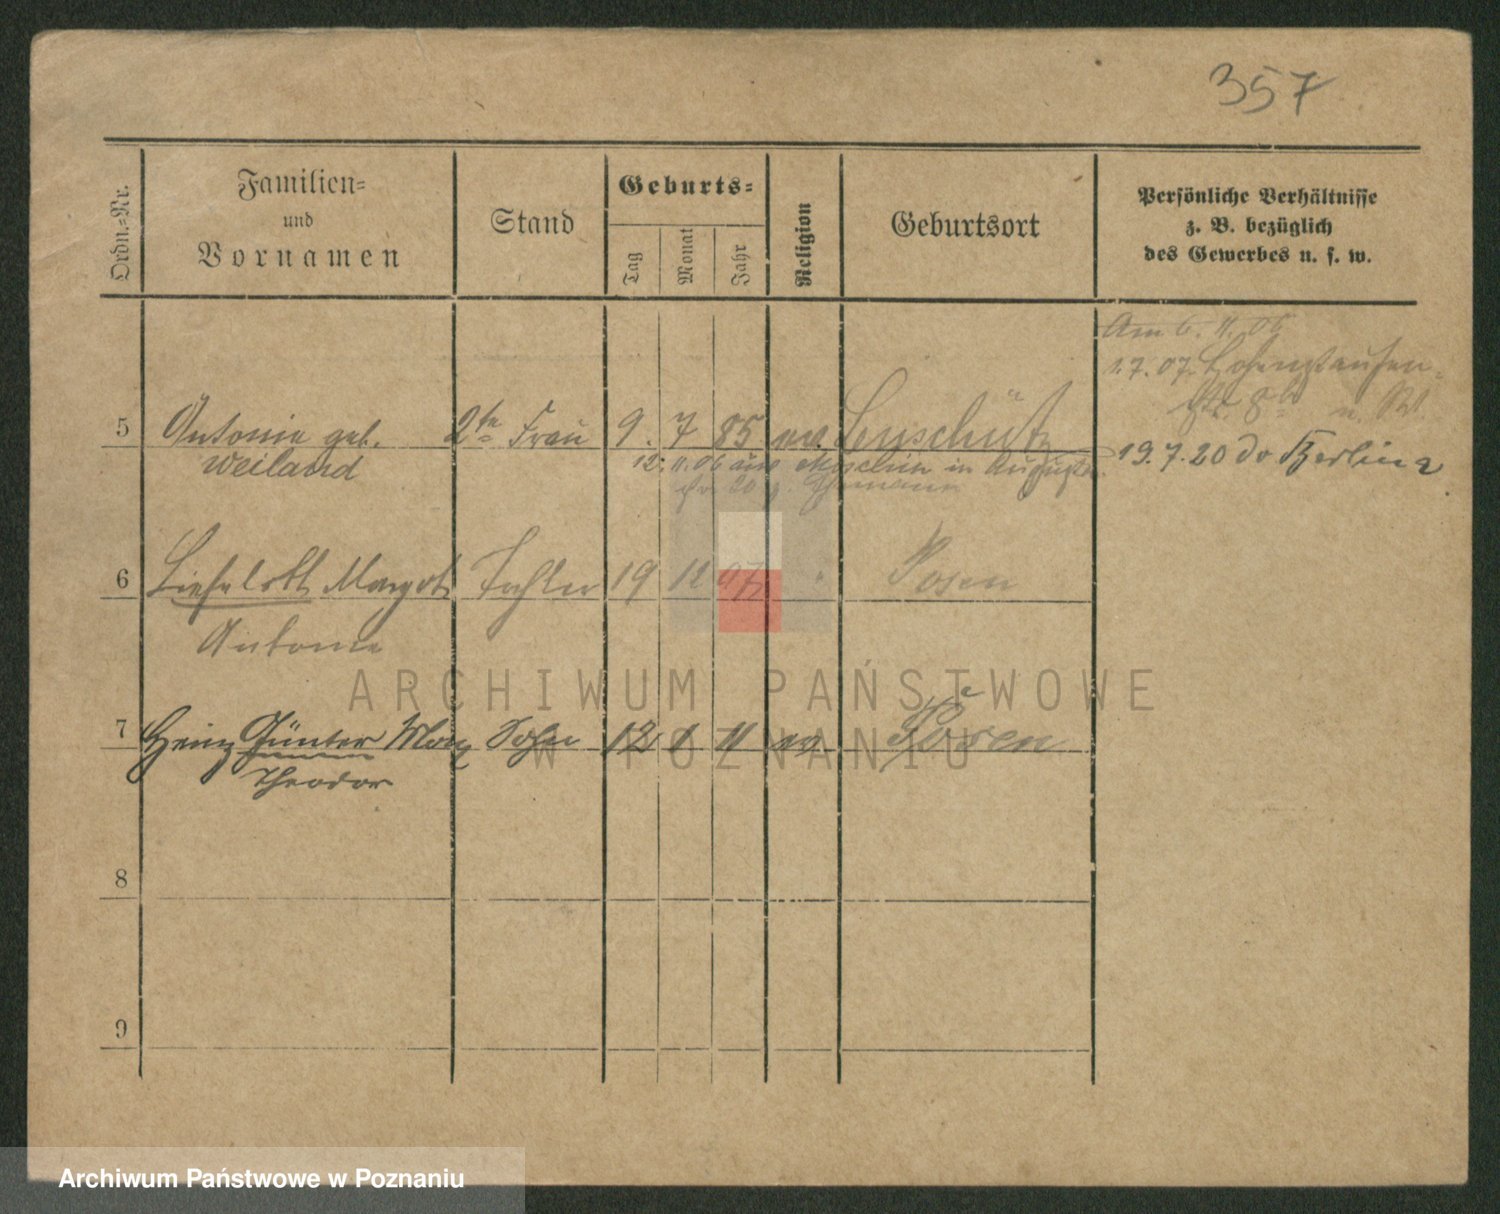 357
Ordn.-Nr.
Familien-
und
Vornamen
Stand
Geburts-
Tag
Monat
Jahr
Religion
Geburtsort
Persönliche Verhältnisse
z. B. bezüglich
des Gewerbes u. s. w.
Am 6. 11. 06
1.7.07. Hohenstaufen-
5 Antonie geb. 2te Frau 9. 7 85 ev. Leuschütz
Weiland
12. 11. 06 aus Moschin in
19.7.20 do Berlin
6 Lieselott Margot Tochter 19 12 07 " Posen
Antonie
7 Heinz Günter Max Sohn 12 1 11 ev. Posen
Theodor
8
9
ARCHIWUM PAŃSTWOWE
W POZNANIU
Archiwum Państwowe w Poznaniu